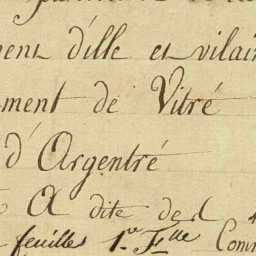 d'ille et vilain
ment de Vitré
d'Argentré
A dite de
feuilles 1.re F.lle Com